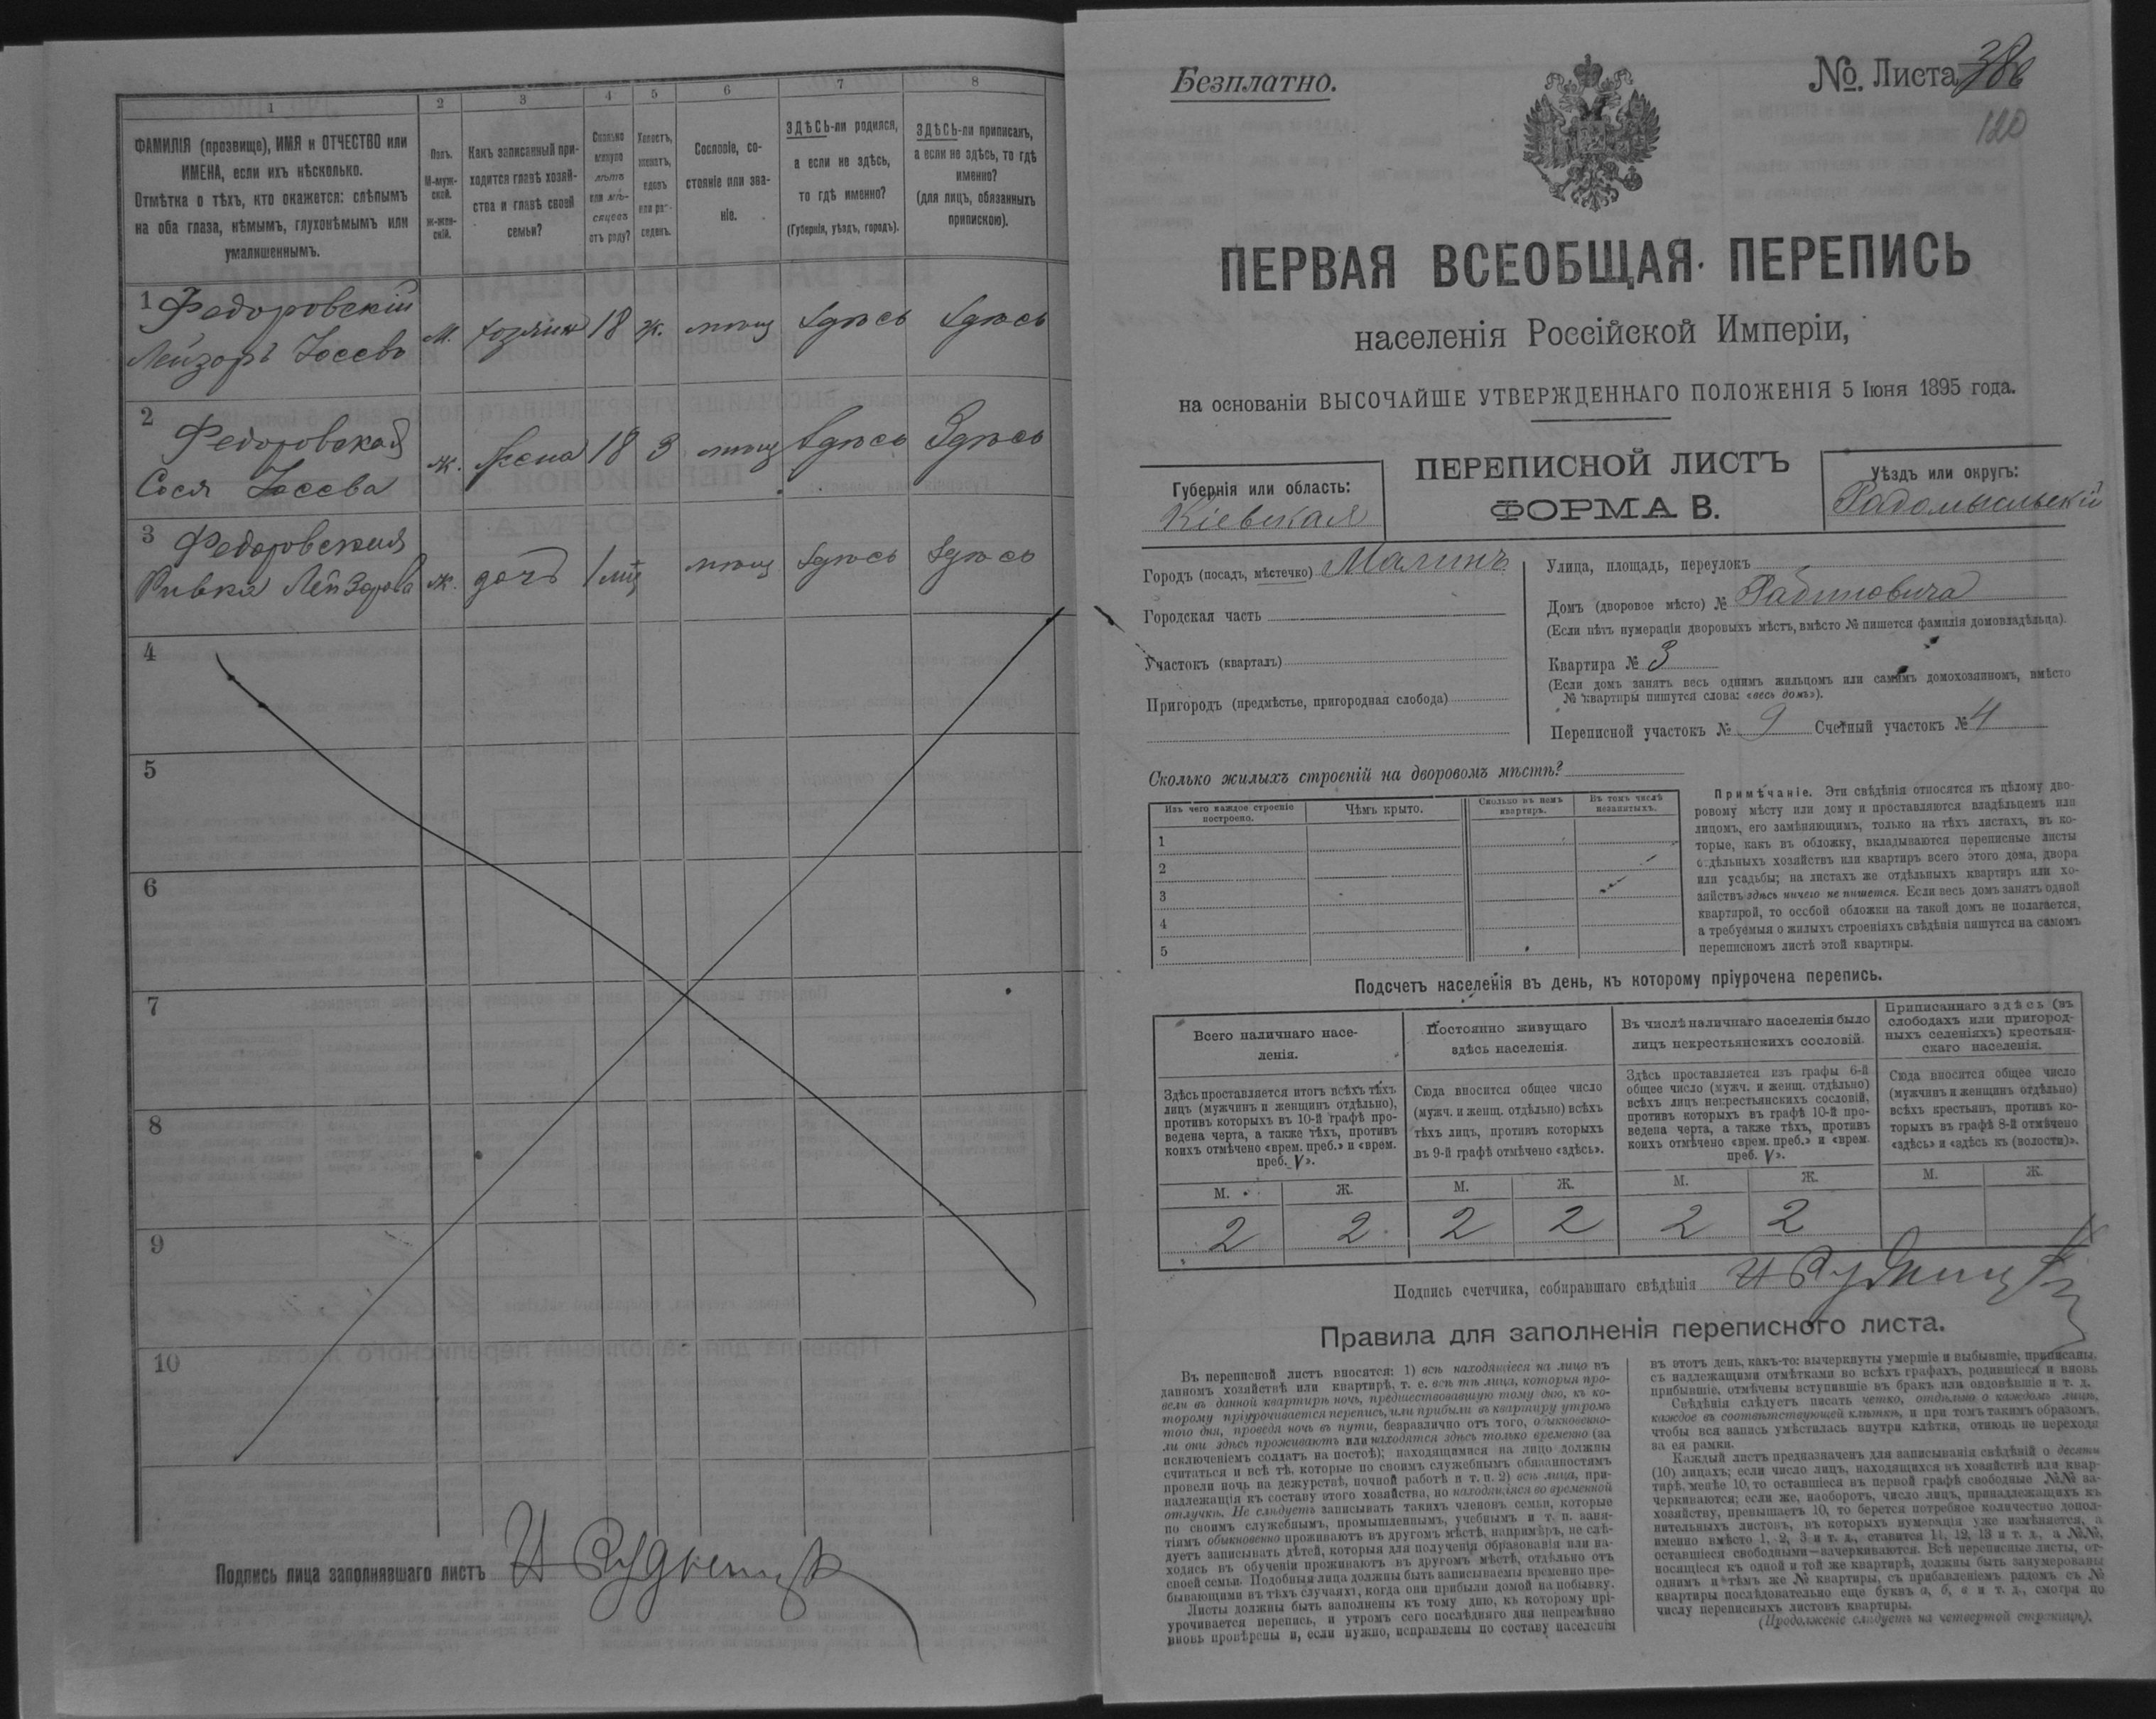 1 2 3 4 5 6 7 8
ФАМИЛІЯ (прозвище), ИМЯ и ОТЧЕСТВО или
ИМЕНА, если ихъ нѣсколько.
Отмѣтка о тѣхъ, кто окажется: слѣпымъ
на оба глаза, нѣмымъ, глухонѣмымъ или
умалишеннымъ.
Полъ.
М-муж-
ской.
Ж-жен-
скій.
Какъ записанный при-
ходится главѣ хозяй-
ства и главѣ своей
семьи?
Сколько
минуло
лѣтъ
или мѣ-
сяцевъ
отъ роду?
Холостъ,
женатъ,
вдовъ
или раз-
веденъ.
Сословіе, со-
стояніе или зва-
ніе.
ЗДѢСЬ-ли родился,
а если не здѣсь,
то гдѣ именно?
(Губернія, уѣздъ, городъ).
ЗДѢСЬ-ли приписанъ,
а если не здѣсь, то гдѣ
именно?
(для лицъ, обязанныхъ
припискою).
1 Федоровскій
Лейзоръ Іосевъ
м. хозяинъ 18 ж. мѣщ здѣсь здѣсь
2 Федоровская
Сося Іосева
ж. жена 18 З мѣщ здѣсь Здѣсь
3 Федоровская
Ривка Лейзорова
ж. дочь 1 мѣ мѣщ здѣсь здѣсь
4
5
6
7
8
9
10
Подпись лица заполнявшаго листъ
Безплатно.
№. Листа 386
120
ПЕРВАЯ ВСЕОБЩАЯ ПЕРЕПИСЬ
населенія Россійской Имперіи,
на основаніи ВЫСОЧАЙШЕ УТВЕРЖДЕННАГО ПОЛОЖЕНІЯ 5 Іюня 1895 года.
Губернія или область:
Кіевская
ПЕРЕПИСНОЙ ЛИСТЪ
ФОРМА В.
Уѣздъ или округъ:
Радомысльскій
Городъ (посадъ, мѣстечко) Малинъ
Городская часть
Участокъ (кварталъ)
Пригородъ (предмѣстье, пригородная слобода)
Улица, площадь, переулокъ
Домъ (дворовое мѣсто) № Рабиновича
(Если нѣтъ нумераціи дворовыхъ мѣстъ, вмѣсто № пишется фамилія домовладѣльца).
Квартира № 3
(Если домъ занятъ весь однимъ жильцомъ или самимъ домохозяиномъ, вмѣсто
№ квартиры пишутся слова: «весь домъ»).
Переписной участокъ № 9 Счетный участокъ № 4
Сколько жилыхъ строеній на дворовомъ мѣстѣ?
Изъ чего каждое строеніе
построено.
Чѣмъ крыто.
Сколько въ немъ
квартиръ.
Въ томъ числѣ
незанятыхъ.
1
2
3
4
5
Примѣчаніе. Эти свѣдѣнія относятся къ цѣлому дво-
ровому мѣсту или дому и проставляются владѣльцемъ или
лицомъ, его замѣняющимъ, только на тѣхъ листахъ, въ ко-
торые, какъ въ обложку, вкладываются переписные листы
отдѣльныхъ хозяйствъ или квартиръ всего этого дома, двора
или усадьбы; на листахъ же отдѣльныхъ квартиръ или хо-
зяйствъ здѣсь ничего не пишется. Если весь домъ занятъ одной
квартирой, то особой обложки на такой домъ не полагается,
а требуемыя о жилыхъ строеніяхъ свѣдѣнія пишутся на самомъ
переписномъ листѣ этой квартиры.
Подсчетъ населенія въ день, къ которому пріурочена перепись.
Всего наличнаго насе-
ленія.
Постоянно живущаго
здѣсь населенія.
Въ числѣ наличнаго населенія было
лицъ некрестьянскихъ сословій.
Приписаннаго здѣсь (въ
слободахъ или пригород-
ныхъ селеніяхъ) крестьян-
скаго населенія.
Здѣсь проставляется итогъ всѣхъ тѣхъ
лицъ (мужчинъ и женщинъ отдѣльно),
противъ которыхъ въ 10-й графѣ про-
ведена черта, а также тѣхъ, противъ
коихъ отмѣчено «врем. преб.» и «врем.
преб. V».
Сюда вносится общее число
(мужч. и женщ. отдѣльно) всѣхъ
тѣхъ лицъ, противъ которыхъ
въ 9-й графѣ отмѣчено «здѣсь».
Здѣсь проставляется изъ графы 6-й
общее число (мужч. и женщ. отдѣльно)
всѣхъ лицъ некрестьянскихъ сословій,
противъ которыхъ въ графѣ 10-й про-
ведена черта, а также тѣхъ, противъ
коихъ отмѣчено «врем. преб.» и «врем.
преб. V».
Сюда вносится общее число
(мужчинъ и женщинъ отдѣльно)
всѣхъ крестьянъ, противъ ко-
торыхъ въ графѣ 8-й отмѣчено
«здѣсь» и «здѣсь къ (волости)».
М. Ж. М. Ж. М. Ж. М. Ж.
2 2 2 2 2 2
Подпись счетчика, собиравшаго свѣдѣнія
Правила для заполненія переписного листа.
Въ переписной листъ вносятся: 1) всѣ находящіеся на лицо въ
данномъ хозяйствѣ или квартирѣ, т. е. всѣ тѣ лица, которыя про-
вели въ данной квартирѣ ночь, предшествовавшую тому дню, къ ко-
торому пріурочивается перепись, или прибыли въ квартиру утромъ
того дня, проведя ночь въ пути, безразлично отъ того, обыкновенно-
ли они здѣсь проживаютъ или находятся здѣсь только временно (за
исключеніемъ солдатъ на постоѣ); находящимися на лицо должны
считаться и всѣ тѣ, которые по своимъ служебнымъ обязанностямъ
провели ночь на дежурствѣ, ночной работѣ и т. п. 2) всѣ лица, при-
надлежащія къ составу этого хозяйства, но находящіяся во временной
отлучкѣ. Не слѣдуетъ записывать такихъ членовъ семьи, которые
по своимъ служебнымъ, промышленнымъ, учебнымъ и т. п. заня-
тіямъ обыкновенно проживаютъ въ другомъ мѣстѣ, напримѣръ, не слѣ-
дуетъ записывать дѣтей, которыя для полученія образованія или на-
ходясь въ обученіи проживаютъ въ другомъ мѣстѣ, отдѣльно отъ
своей семьи. Подобныя лица должны быть записываемы временно пре-
бывающими въ тѣхъ случаяхъ, когда они прибыли домой на побывку.
Листы должны быть заполнены къ тому дню, къ которому прі-
урочивается перепись, и утромъ сего послѣдняго дня непремѣнно
вновь провѣрены и, если нужно, исправлены по составу населенія
въ этотъ день, какъ-то: вычеркнуты умершіе и выбывшіе, приписаны,
съ надлежащими отмѣтками во всѣхъ графахъ, родившіеся и вновь
прибывшіе, отмѣчены вступившіе въ бракъ или овдовѣвшіе и т. д.
Свѣдѣнія слѣдуетъ писать четко, отдѣльно о каждомъ лицѣ,
каждое въ соотвѣтствующей клѣткѣ, и при томъ такимъ образомъ,
чтобы вся запись умѣстилась внутри клѣтки, отнюдь не переходя
за ея рамки.
Каждый листъ предназначенъ для записыванія свѣдѣній о десяти
(10) лицахъ; если число лицъ, находящихся въ хозяйствѣ или квар-
тирѣ, менѣе 10, то оставшіеся въ первой графѣ свободные №№ за-
черкиваются; если же, наоборотъ, число лицъ, принадлежащихъ къ
хозяйству, превышаетъ 10, то берется потребное количество допол-
нительныхъ листовъ, въ которыхъ нумерація уже измѣняется, а
именно вмѣсто 1, 2, 3 и т. д., ставится 11, 12, 13 и т. д., а №№,
оставшіеся свободными—зачеркиваются. Всѣ переписные листы, от-
носящіеся къ одной и той же квартирѣ, должны быть занумерованы
однимъ и тѣмъ же № квартиры, съ прибавленіемъ рядомъ съ №
квартиры послѣдовательно еще буквъ а, б, в и т. д., смотря по
числу переписныхъ листовъ квартиры.
(Продолженіе слѣдуетъ на четвертой страницѣ).